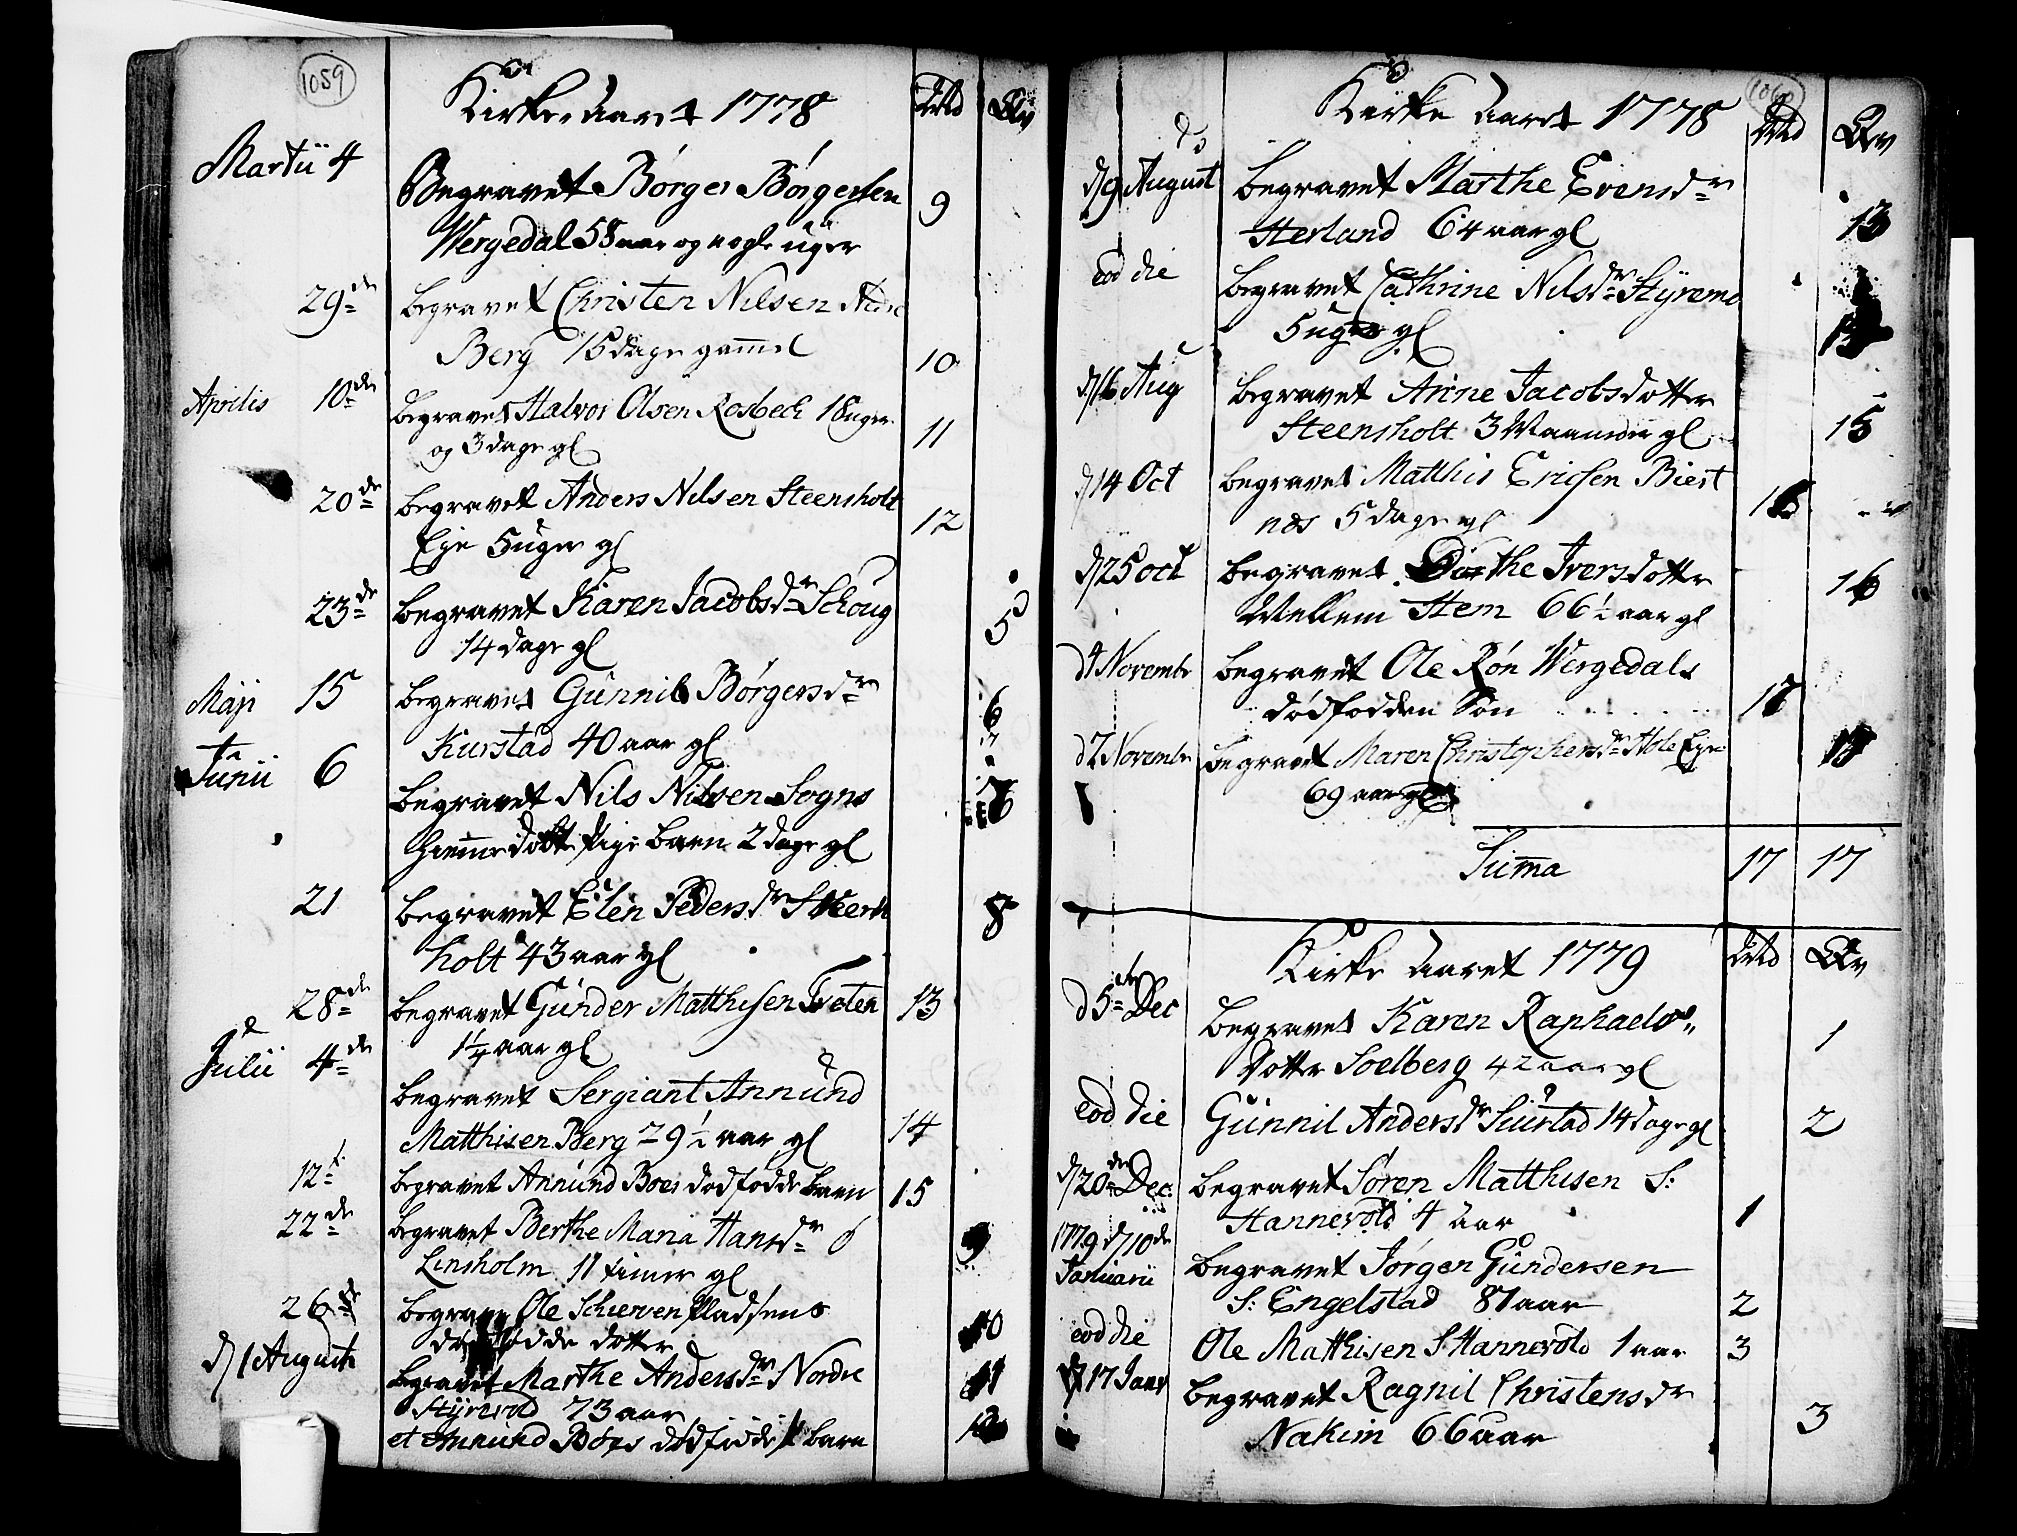 1059
Kirke Aaret 1778 Mkd Qv
Martii 4 Begravet Børger Børgersen 9
Wergedal 58 aar og nogle uger
29de Begravet Christen Nilsen Nedre
Berg 15 dage gammel 10
Aprilis 10de Begravet Halvor Olsen Rosbech 18 uger
og 3 dage gl 11
20de Begravet Anders Nilsen Steensholt 12
Eje 5 uger gl
23de Begravet Karen Jacobsdr Schoug 5
14 dage gl
Maji 15 Begravet Gunnil Børgersdr 6
Kurstad 40 aar gl
Junii 6 Begravet Nils Nilsen Sogns
Pige Barn 2 dage gl
21 Begravet Elen Pedersdr Steens 8
holt 43 aar gl
28de Begravet Gunder Matthisen Tveten 13
1 1/4 aar gl
Julii 4de Begravet Sergiant Annund
Matthisen Berg 29 1/2 aar gl 14
12t Begravet Annund Boes dødfødde Barn 15
22de Begravet Berthe Maria Hansdr 9
Linsholm 11 timer gl
26de Begravet Ole Schierven Pladsens 10
dødfødde dotter
d 1 August Begravet Marthe Andersdr Nordre 11
Styrvold 73 aar
et Annund Boes dødfødde Barn 12
Kirke Aaret 1778 Mkd Qv
d 9 August Begravet Marthe Evensdr 13
Herland 64 aar gl
eod die Begravet Cathrine Nilsdr
5 uger gl
d 16 Aug Begravet Anne Jacobsdotter
Steensholt 3 Maaneder gl 15
d 14 Oct Begravet Matthis Ericsen Biest 16
nes 5 dage gl
d 25 oct Begravet Dorthe Iversdotter 16
Mellem Hem 66 1/2 aar gl
d 4 Novembr Begravet Ole Røn Wergedals
dødfødden Søn 17
d 7 Novembr Begravet Maren Christophersdr Hole Eje
69 aar gl
Suma 17 17
Kirke Aaret 1779 Mkd Qv
d 5te Dec Begravet Karen Raphaels
dotter Soelberg 42 aar gl 1
eod die Gunnil Andersdr Siurstad 14 dage gl 2
d 20de Dec: Begravet Søren Matthisen S:
Hannevold 4 aar 1
1779 d 10de Begravet Jørgen Gundersen
Januarii S: Engelstad 81 aar 2
eod die Ole Matthisen S Hannevold 1 aar 3
d 17 Janr Begravet Ragnil Christensdr
Nakim 66 aar 3